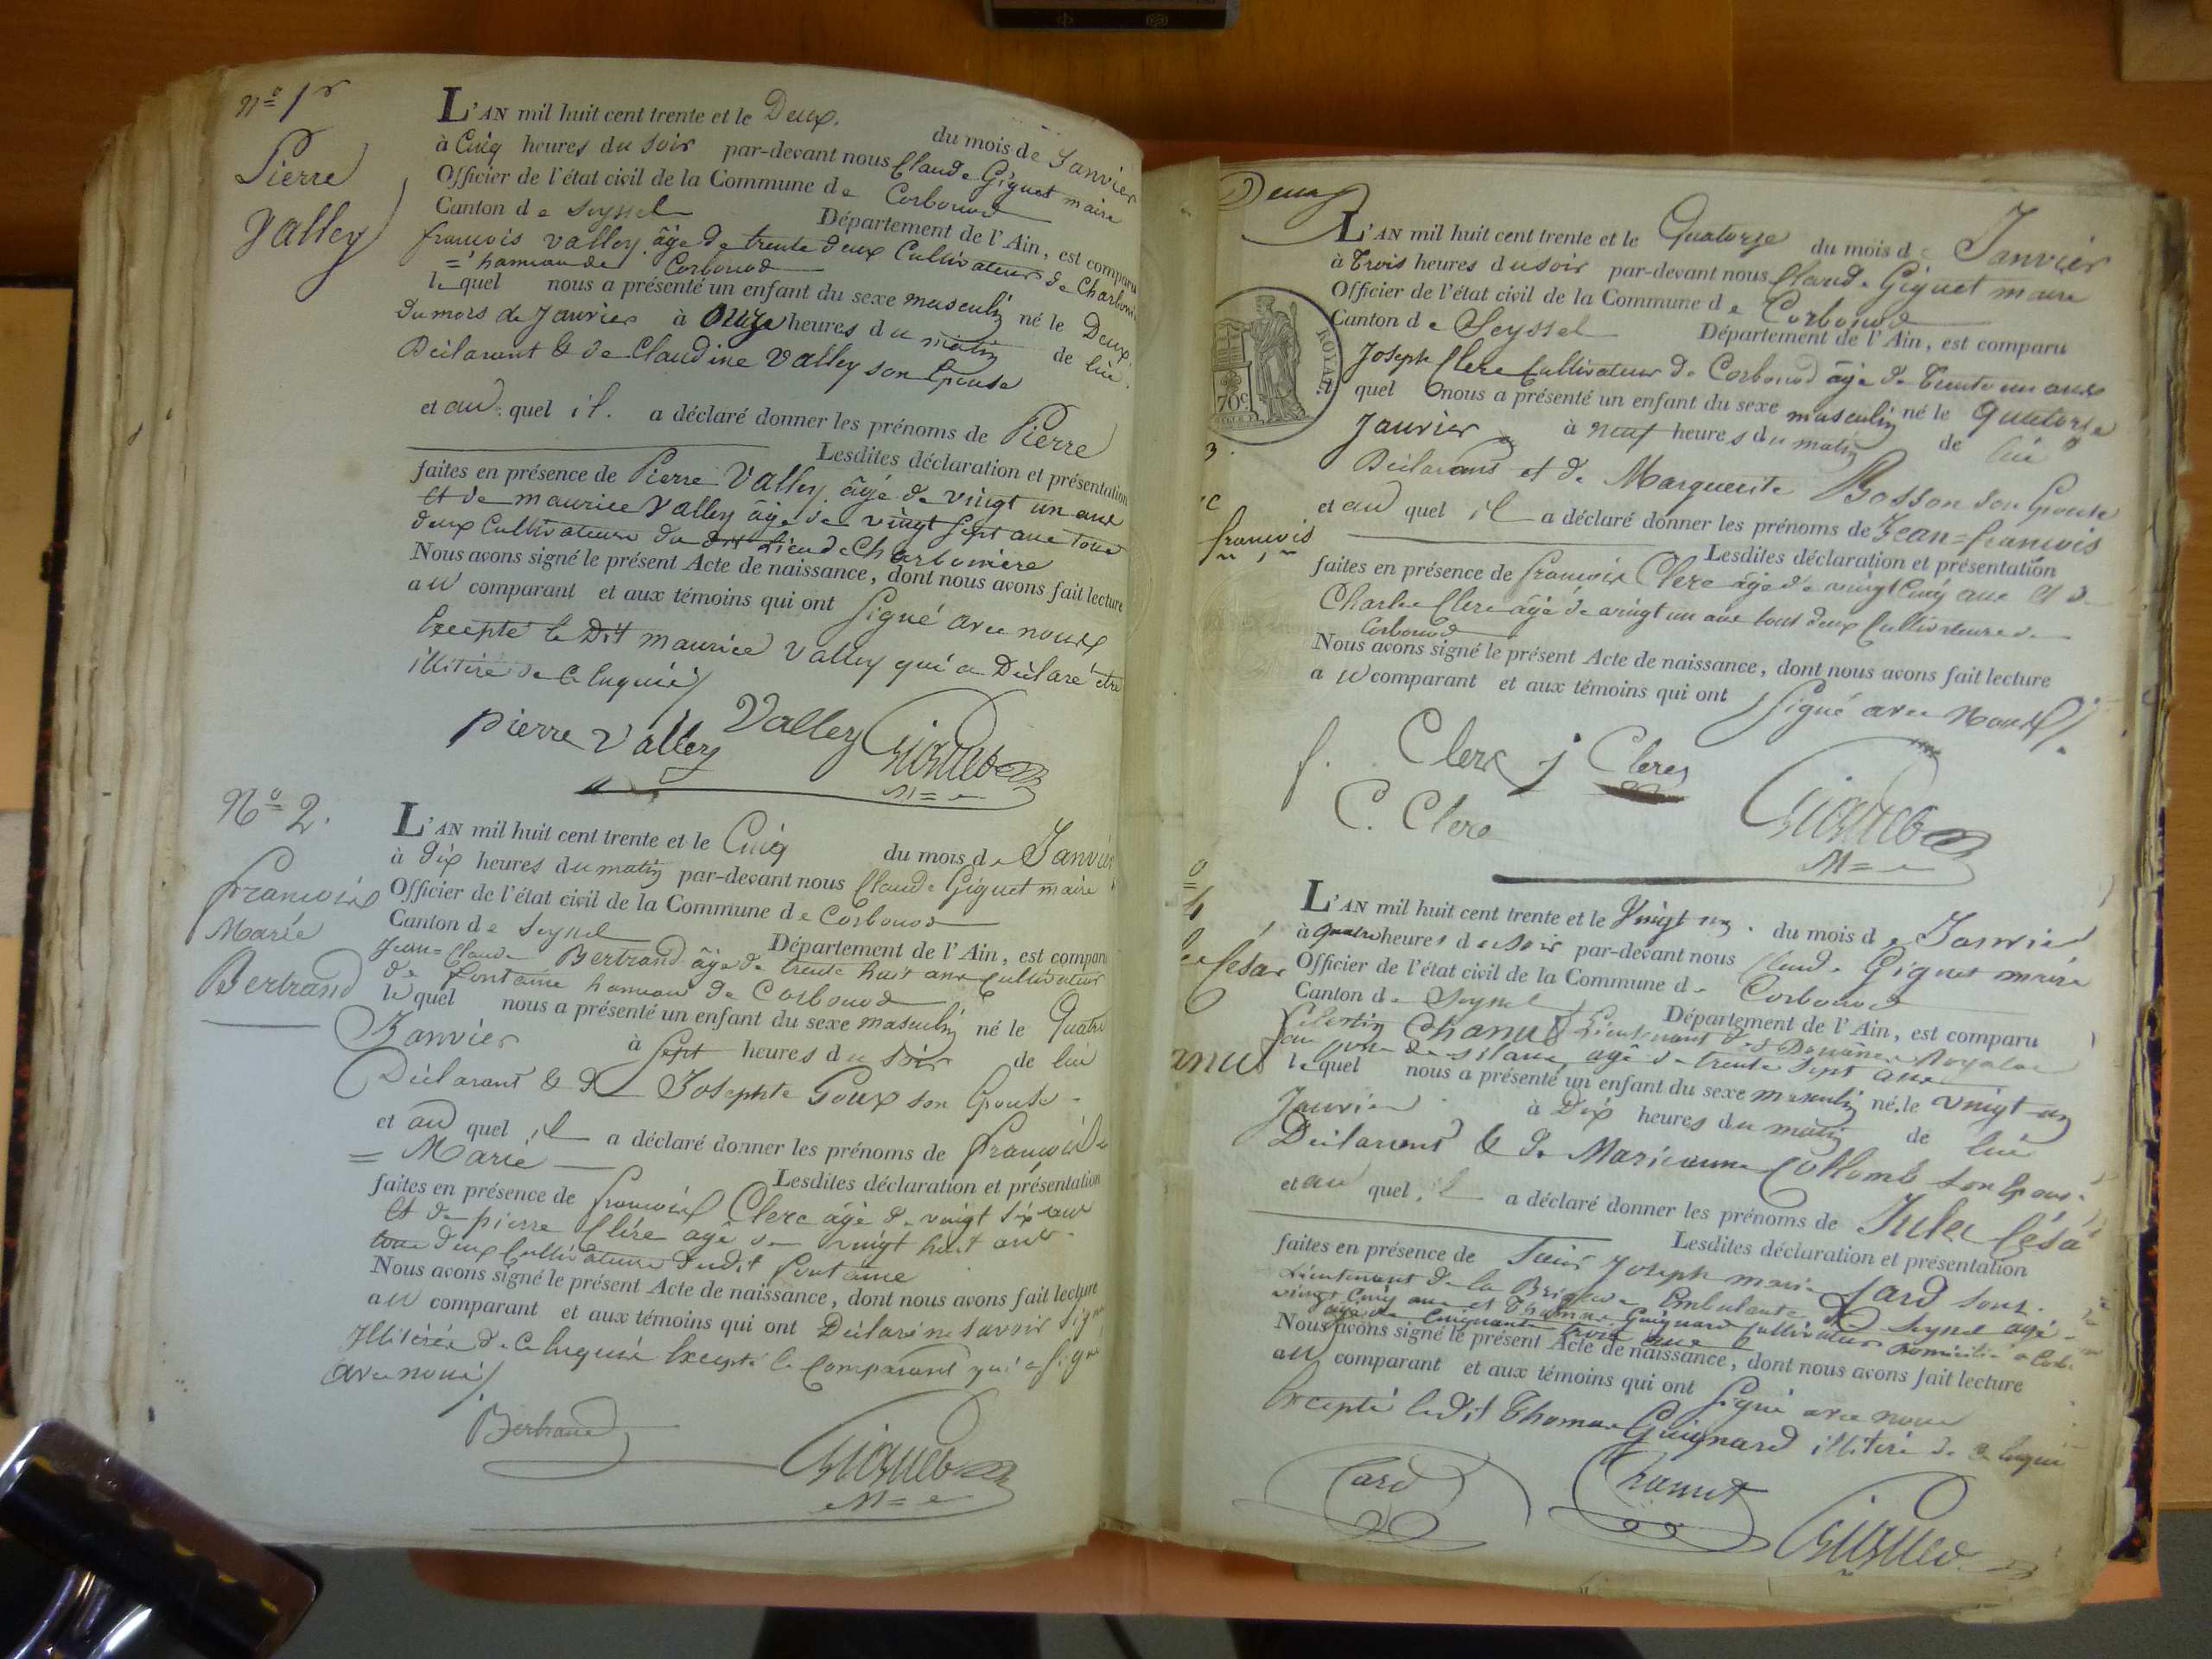 N.º 1.r
Pierre
Valley
L'AN mil huit cent trente et le Deux. du mois de Janvier
à Cinq heures du soir par-devant nous Claude Giguet maire
Officier de l'état civil de la Commune de Corbonod
Canton de Seyssel Département de l'Ain, est comparu
francois valley âgé de trente deux Cultivateur de Charbon
= hameau de Corbonod
lequel nous a présenté un enfant du sexe masculin né le Deux
du mois de Janvier à Onze heures du matin de lui
Déclarant & de Claudine Valley son Epouse
et au quel il a déclaré donner les prénoms de Pierre
Lesdites déclaration et présentation
faites en présence de Pierre Valley âgé de vingt un ans
et de maurice Valley âgé de vingt sept ans tous
deux Cultivateurs du dit Lieu de Charbonière
Nous avons signé le présent Acte de naissance, dont nous avons fait lecture
au comparant et aux témoins qui ont signé avec nous
Excepté le Dit maurice Valley qui a Déclaré être
illitéré de ce Enquis
pierre valley Valley Giguet
M=e
N.º 2.
francois
Marie
Bertrand
L'AN mil huit cent trente et le Cinq du mois de Janvier
à dix heures du matin par-devant nous Claude Giguet maire
Officier de l'état civil de la Commune de Corbonod
Canton de Seyssel Département de l'Ain, est comparu
Jean=Claude Bertrand âgé de trente huit ans Cultivateur
de fontaine hameau de Corbonod
lequel nous a présenté un enfant du sexe masculin né le Quatre
Janvier à Sept heures du Soir de lui
Déclarant & de Josephte Goux son Epouse
et au quel il a déclaré donner les prénoms de francois
= Marie
Lesdites déclaration et présentation
faites en présence de francois Clerc âgé de vingt six ans
et de pierre Clerc agé de vingt huit ans
tous deux Cultivateurs dudit fontaine
Nous avons signé le présent Acte de naissance, dont nous avons fait lecture
au comparant et aux témoins qui ont Déclaré ne savoir signer
Illitérés de ce Enquis Excepté le Comparant qui a signé
avec nous
Bertrand Giguet
M=e
Deux
L'AN mil huit cent trente et le Quatorze du mois de Janvier
à Trois heures du soir par-devant nous Claude Giguet maire
Officier de l'état civil de la Commune de Corbonod
Canton de Seyssel Département de l'Ain, est comparu
ROYAL
70c
Joseph Clerc Cultivateur de Corbonod âgé de Trente un ans
quel nous a présenté un enfant du sexe masculin né le Quatorze
Janvier à neuf heures du matin de lui
3.
Déclarant et de Marguerite Bosson son Epouse
francois
et au quel il a déclaré donner les prénoms de Jean=francois
Lesdites déclaration et présentation
faites en présence de francois Clerc âgé de vingt Cinq ans et de
Charles Clerc âgé de vingt un ans tout deux Cultivateurs de
Corbonod
Nous avons signé le présent Acte de naissance, dont nous avons fait lecture
au comparant et aux témoins qui ont signé avec Nous
f. Clerc j Clerc
C. Clerc Giguet
M=e
4
César
L'AN mil huit cent trente et le Vingt un. du mois de Janvier
à quatre heures du soir par-devant nous Claude Giguet maire
Officier de l'état civil de la Commune de Corbonod
Canton de Seyssel Département de l'Ain, est comparu
Celestin Chanut Lieutenant des Douanes Royales
au agé de trente sept ans
lequel nous a présenté un enfant du sexe masculin né le vingt-un
Janvier à Dix heures du matin de lui
Déclarant & de Marieanne Collomb son Epouse
et au quel il a déclaré donner les prénoms de Jules César
Lesdites déclaration et présentation
faites en présence de Joseph marie Card sous
Lieutenant de la Brigade Embulante de Seyssel agé
vingt Cinq ans et Thomas Guignard Cultivateur domicilié a Corb
âgé de Cinquante trois ans
Nous avons signé le présent Acte de naissance, dont nous avons fait lecture
au comparant et aux témoins qui ont signé avec nous
Excepté ledit Thomas Guignard illitéré de ce Enquis
Card Chanut Giguet